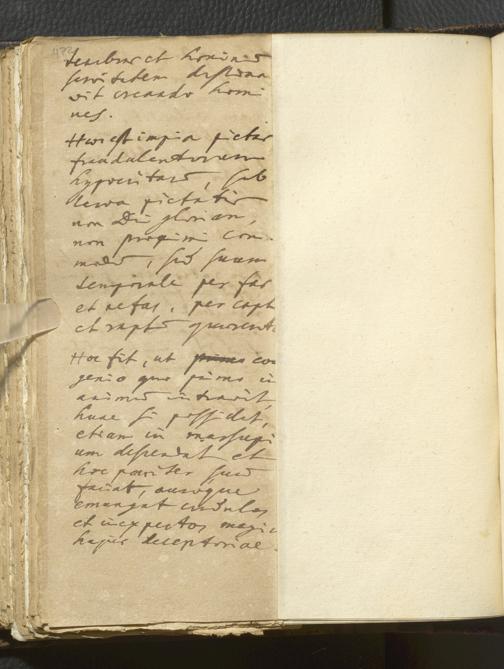 et hominū
destina
vit creando homi
nes.
Haec est impia pietas
fraudulentorum
hypocritarū, sub
larva pietatis
non Dei gloriam,
non proximi com
modū, sed suum
temporale per fas
et nefas, per capt
et raptū quaerent
Hoc fit, ut primo cō
genio quo primo in
animū intravit,
hunc si possidet,
etiam in marsupi
um descendat et
hoc pariter suū
faciat, auroque
emungat credulos
et inexpertos magiae
hujus deceptoriae.